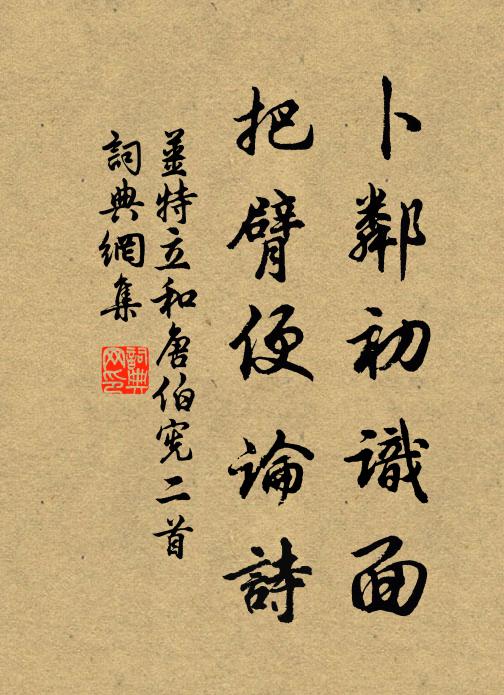 卜鄰初識面
把臂便論詩
薑特立和唐伯宪二首
詞典網集
詞典
网印